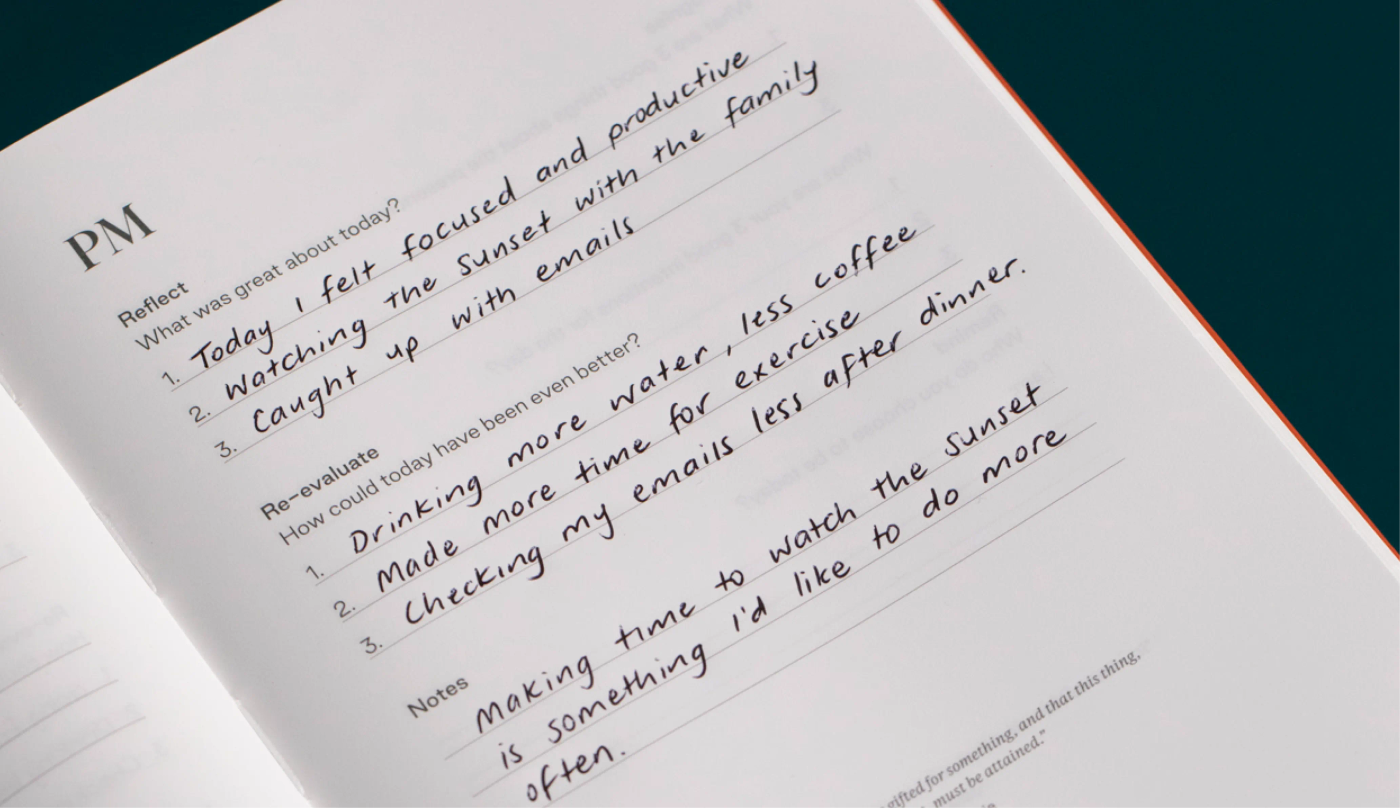 PM
Reflect
What was great about today?
1. Today I felt focused and productive
2. Watching the sunset with the family
3. Caught up with emails
Re-evaluate
How could today have been even better?
1. Drinking more water, less coffee
2. Made more time for exercise
3. Checking my emails less after dinner.
Notes
Making time to watch the sunset
is something I'd like to do more
often.
gifted for something, and that this thing,
must be attained."